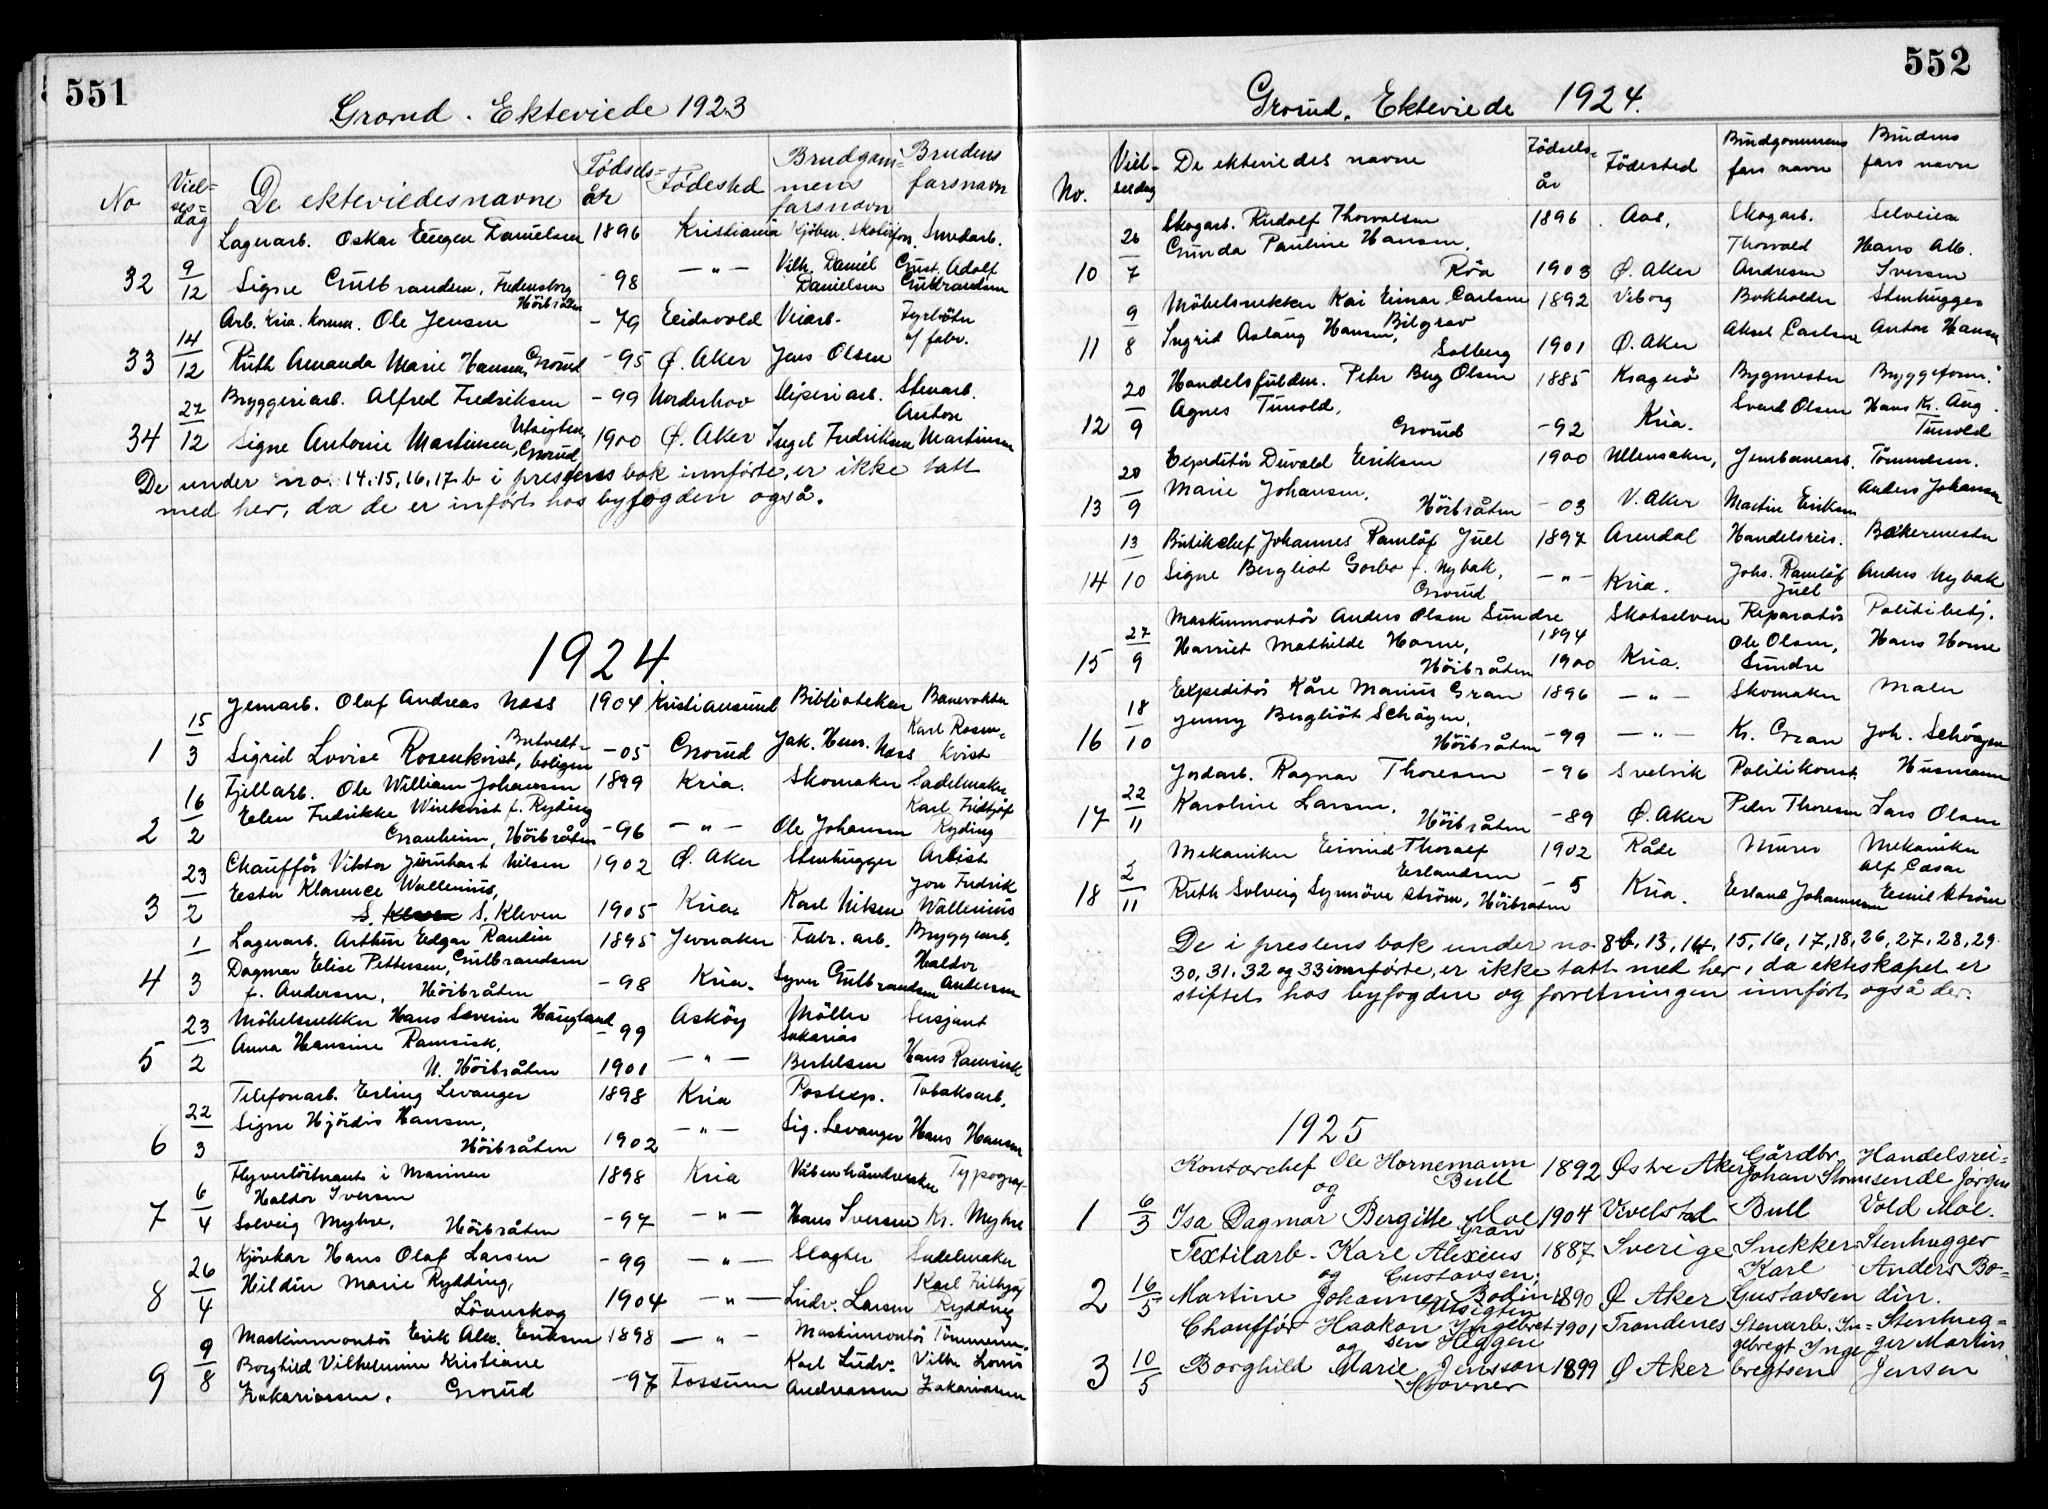 551
Grorud. Ekteviede 1923
No Viel-ses-dag De ekteviedes navne Fødsels-år Fødested Brudgom-mens farsnavn Brudens farsnavn
Lagerarb. Oskar Eugen Danielsen 1896 Kristiania Smedarb.
32 9/12 Signe Gulbrandsen, Fredensborg -98 -"- Vilh. Daniel Gust. Adolf
Höibråten Danielsen Gulbrandsen
Arb. Kria. komm. Ole Jensen -79 Eidsvold Veiarb. Fyrbøter
33 14/12 Ruth Amanda Marie Hansen, Grorud -95 Ø. Aker Jens Olsen
Bryggeriarb. Alfred Fredriksen -99 Norderhov Sliperiarb. Stenarb.
34 27/12 Signe Antonie Martinsen, Utsigten, Grorud 1900 Ø. Aker Fredriksen Anton Martinsen
De under no. 14.15,16,17 b i prestens bok innførte, er ikke tatt
med her, da de er inført hos byfogden også.
1924.
Jernarb. Olaf Andreas Næss 1904 Kristiansund Bibliotekar Banevokter
1 15/3 Sigrid Lovise Rosenkvist, Butvedt-boligen -05 Grorud Jak. Henr. Næss Karl Rosen-kvist
Fjellarb. Ole William Johansen 1899 Kria. Skomaker Sadelmaker
2 16/2 Elen Fredrikke Winkvist f. Ryding
Granheim, Höibråten -96 -"- Ole Johansen Karl Fridtjof Ryding
Chauffør Viktor Nilsen 1902 Ø. Aker Stenhugger Artist
3 23/2 Ester Klarence Wallenius,
S. Kleven S. Kleven 1905 Kria. Karl Nilsen Jon Fredrik Wallenius
Lagerarb. Arthur Edgar Randin Gulbrandsen 1895 Jevnaker Fabr. arb. Bryggearb.
4 1/3 Dagmar Elise Pettersen,
f. Andersen, Höibråten -98 Kria. Syver Gulbrandsen Haldor Andersen
Møbelsnekker Hans Severin Haugland -99 Askøy Møller Sersjant
5 23/2 Anna Hansine Ramsisk,
N. Höibråten 1901 -"- Sakarias Bertelsen Hans Ramsisk
Telefonarb. Erling Levanger 1898 Kria Postexp. Tobaksarb.
6 22/3 Signe Hjördis Hansen,
Höibråten 1902 -"- Sig. Levanger Hans Hansen
Flyverlöitnant i Marinen 1898 Kria Våbenhåndverker Typograf
Haldor Iversen
7 6/4 Solveig Myhre, Höibråten -97 -"- Hans Iversen Kr. Myhre
Kjørekar Hans Olaf Larsen -99 -"- Slagter Sadelmaker
8 26/4 Hildur Marie Rydding,
Lörenskog 1904 -"- Ludv. Larsen Karl Rydding
Maskinmontör Erik Alex. Eriksen 1898 -"- Maskinmontör Tömmerm.
9 9/8 Borghild Vilhelmine Kristiane
Zakariassen. Grorud -97 Fossum Karl Ludv. Andreassen Vilh. Louis Zakariassen
552
Grorud. Ekteviede 1924.
No. Viel-sesdag De ekteviedes navne Fødsels-år Födested Brudgommens fars navn Brudens fars navn
Skogarb. Rudolf Thorvalsen 1896 Aas, Skogarb. Selveier
10 26/7 Gunda Pauline Hansen,
Röa 1903 Ø. Aker Thorvald Andresen Hans Alb. Iversen
Möbelsnekker Kai Eimar Carlsen 1892 Viborg Bokholder Stenhugger
11 9/8 Ingrid Aslaug Hansen, Bilgrav
Solberg 1901 Ø. Aker Aksel Carlsen Anton Hansen
Handelsfuldm. Peter Berg Olsen 1885 Kragerö Bygmester Bryggeform.
12 20/9 Agnes Tunold,
Grorud -92 Kria. Svend Olsen Hans Kr. Aug. Tunold
Expeditör Duvald Eriksen 1900 Ullensaker, Jernbanearb. Tömmerm.
13 20/9 Marie Johansen,
Höibråten -03 V. Aker Martin Eriksen Anders Johansen
Butikchef Johannes Ramlöf Juel 1897 Arendal Handelsreis. Bakermester
14 13/10 Signe Bergliot Gorbo f. Nybak,
Grorud -"- Kria. Johs. Ramlöf Juel Anders Nybak
Maskinmontör Anders Olsen Sundre 1894 Skotselven Reparatör Politibetj.
15 27/9 Harriet Mathilde Horne,
Höibråten 1900 Kria. Ole Olsen, Sundre Hans Horne
Expeditör Kåre Marius Gran 1896 -"- Skomaker Maler
16 18/10 Jenny Bergliöt Schöyen,
Höibråten -99 -"- Kr. Gran Joh. Schöyen
Jordarb. Ragnar Thoresen -96 Svelvik Politikonst. Husmann
17 22/11 Karoline Larsen.
Höibråten -89 Ø. Aker Peder Thoresen Lars Olsen
Mekaniker Eivind Thoralf Erlandsen 1902 Råde Murer Mekaniker
18 2/11 Ruth Solveig Synnöve Ström, Höibråten -5 Kria. Erland Johannesen Alf Cæsar Emil Ström
De i prestens bok under no. 8b, 13, 14, 15, 16, 17, 18, 26, 27, 28, 29.
30, 31. 32 og 33 innførte, er ikke tatt med her, da ekteskapet er
stiftet hos byfogden og forretningen innført også der.
1925
Kontorchef Ole Hornemann Bull 1892 Østre Aker Gårdbr. Johan Storm Bull Handelsrei-sende Jørgen Vold Moe.
og
1 6/3 Isa Dagmar Bergitte Moe 1904 Vivelstad
Gran
Textilarb. Karl Alexius Gustavsen, 1887 Sverige Snekker Karl Gustavsen Stenhugger Anders Bo-din.
og
2 16/5 Martine Johanne Bodin 1890 Ø Aker
Utsigten
Chauffør Haakon Ingebret-sen Heggen 1901 Trondenes Stenarb. In-gebregt Inge-bregtsen Stenhug-ger Martin Jensen
og
3 10/5 Borghild Marie Jensson 1899 Ø Aker
Stovner